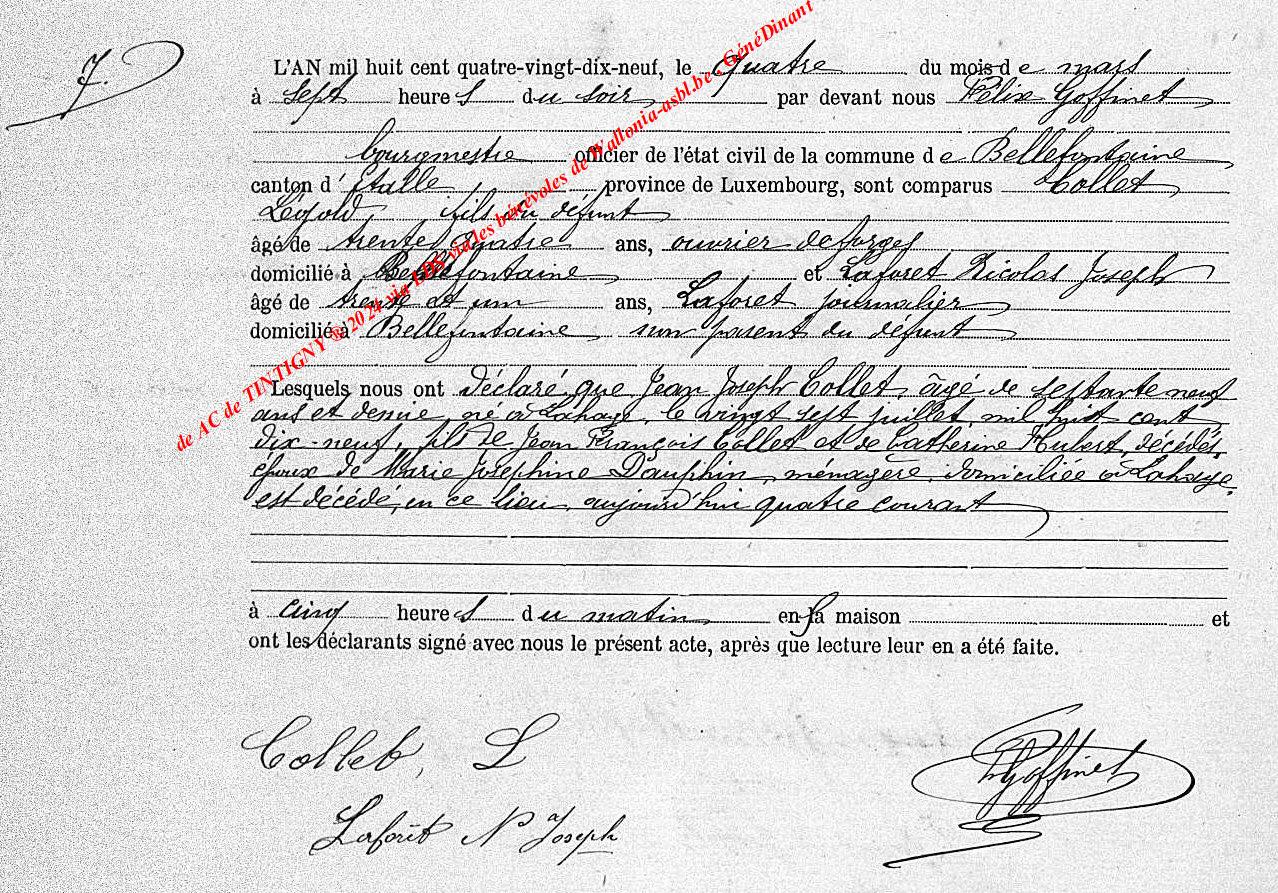 7.
L'AN mil huit cent quatre-vingt-dix-neuf, le quatre du mois de mars
à sept heures du soir par devant nous Félix Goffinet
bourgmestre officier de l'état civil de la commune de Bellefontaine
canton d'Etalle province de Luxembourg, sont comparus Collet
Léopold, fils du défunt
âgé de trente quatre ans, ouvrier de forges
domicilié à Bellefontaine et Laforet Nicolas Joseph
âgé de trente et un ans, Laforet journalier
domicilié à Bellefontaine non parent du défunt
Lesquels nous ont déclaré que Jean Joseph Collet, âgé de septante neuf
ans et demie, né à Lahage, le vingt sept juillet mil huit cent
dix-neuf, fils de Jean François Collet et de Catherine Hubert, décédés,
époux de Marie Josephine Dauphin, ménagère, domiciliée à Lahage,
est décédé, en ce lieu, aujourd'hui quatre courant
à cinq heures du matin en sa maison et
ont les déclarants signé avec nous le présent acte, après que lecture leur en a été faite.
Collet, L
Goffinet
Laforêt N Joseph
de AC de TINTIGNY ®2024 via LDS via les bénévoles de Wallonia-asbl.be - GénéDinant